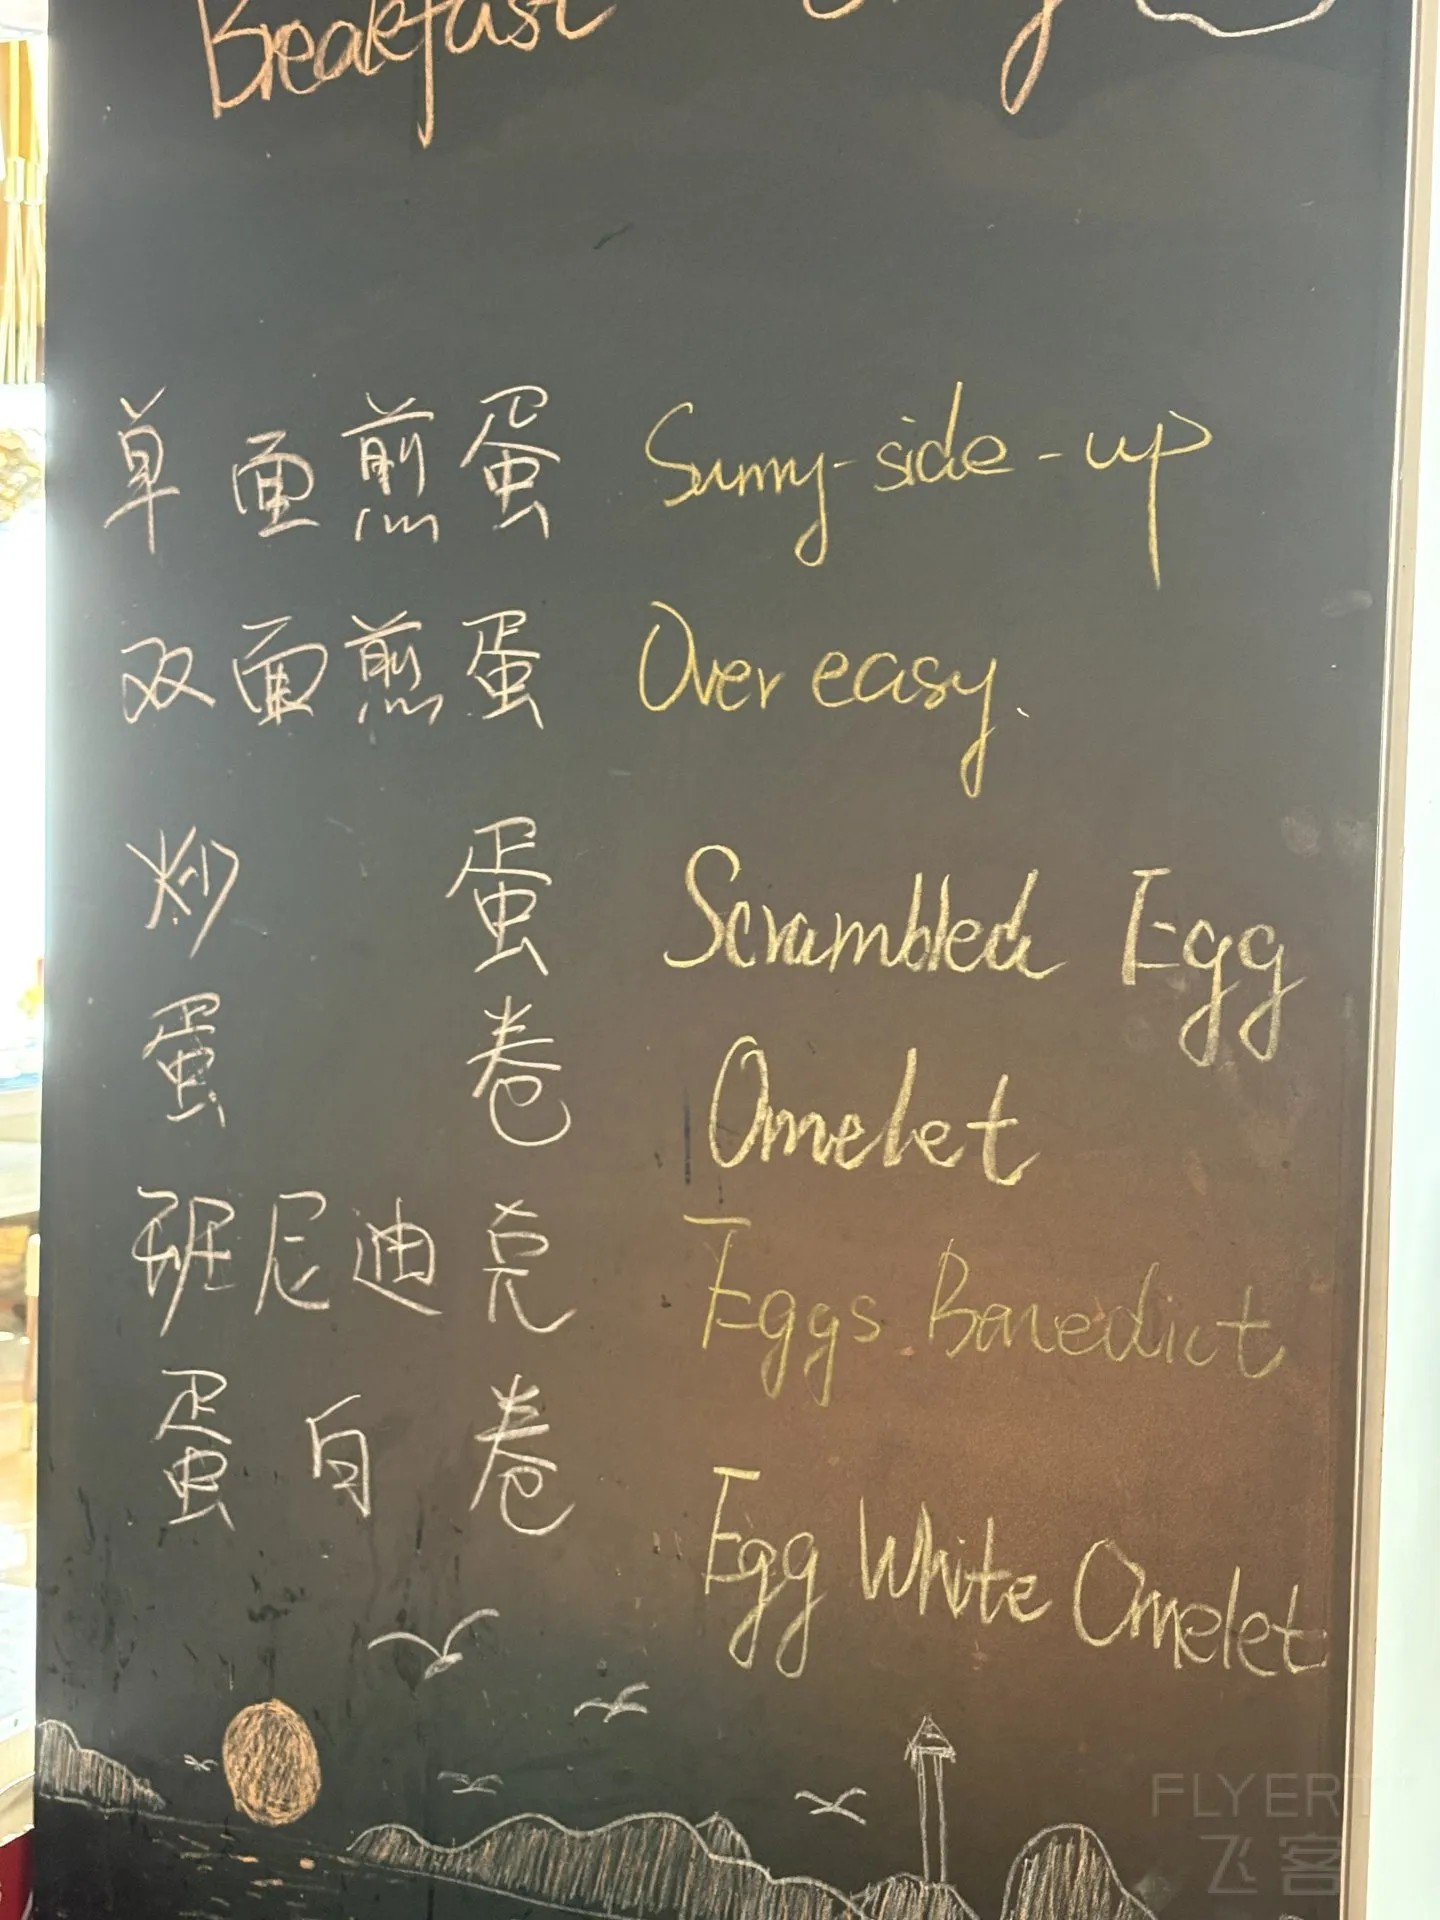 Breakfast
单面煎蛋 Sunny-side-up
双面煎蛋 Over easy.
炒 蛋 Scrambled Egg
蛋 卷 Omelet
班尼迪克 Eggs Banedict
蛋白卷 Egg White Omelet
FLYERT
飞客